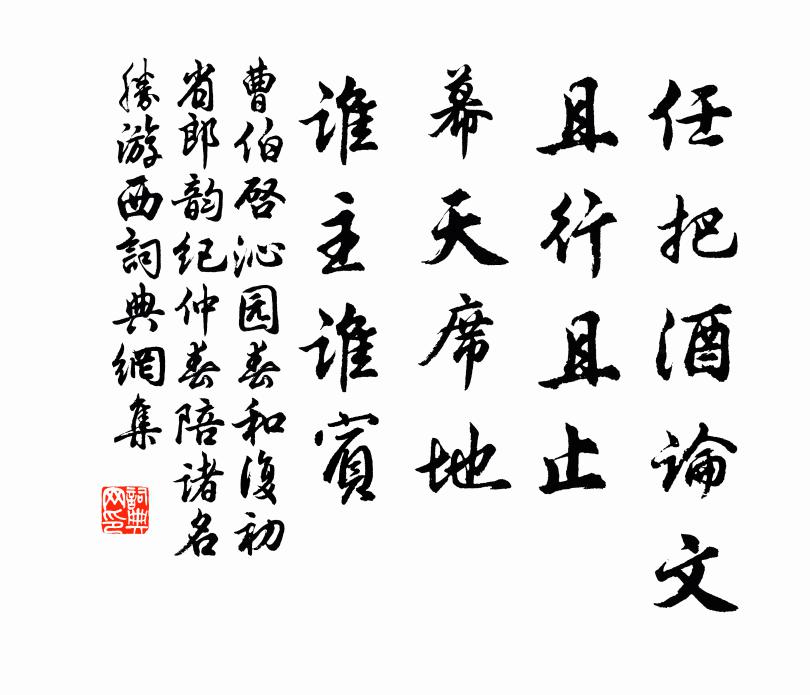 任把酒論文
且行且止
幕天席地
誰主誰賓
曹伯啓沁园春和復初
省郎韵纪仲春陪诸名
勝游西詞典網集
詞典网印